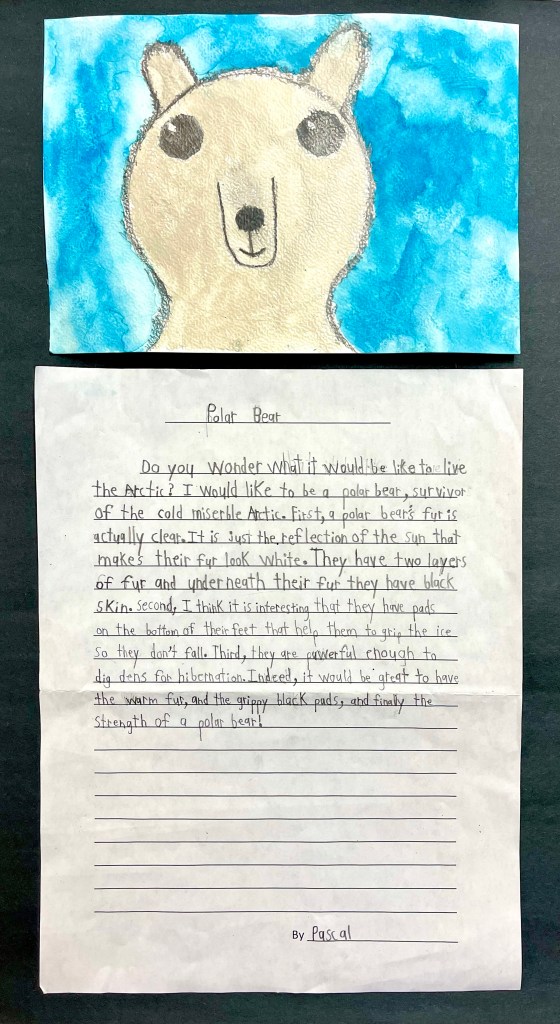 Polar Bear
Do you wonder what it would be like to live
the Arctic? I would like to be a polar bear, survivor
of the cold miserble Arctic. First, a polar bear's fur is
actually clear. It is just the reflection of the sun that
makes their fur look white. They have two layers
of fur and underneath their fur they have black
skin. Second, I think it is interesting that they have pads
on the bottom of their feet that help them to grip the ice
so they don't fall. Third, they are powerful enough to
dig dens for hibernation. Indeed, it would be great to have
the warm fur, and the grippy black pads, and finally the
strength of a polar bear!
By Pascal